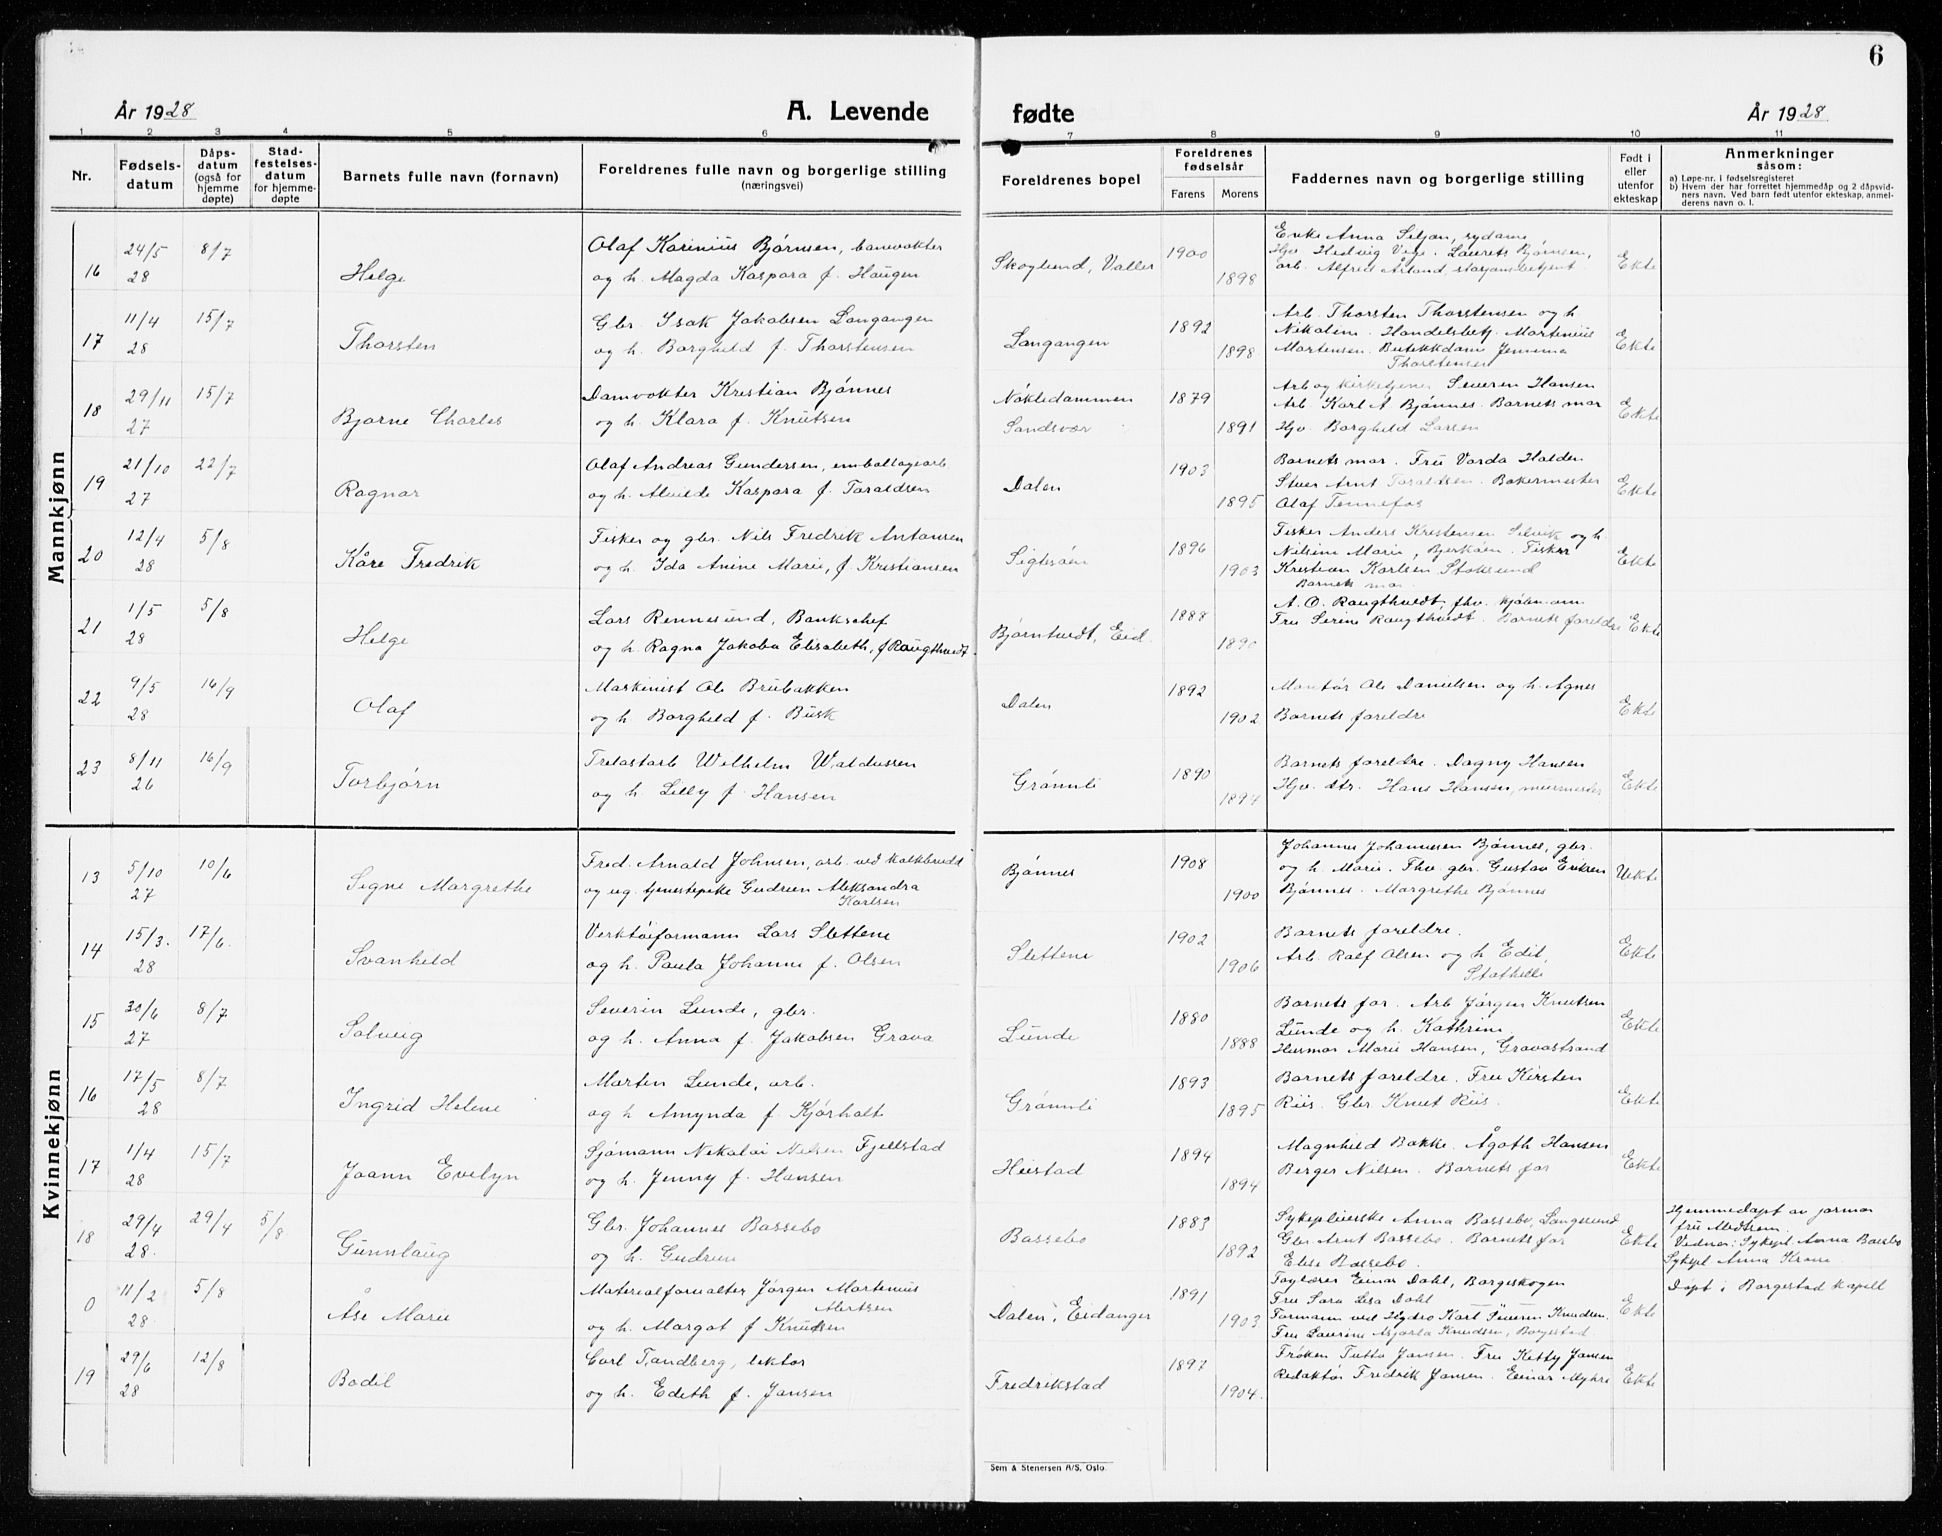 6
År 1928
A. Levende
fødte
År 1928.
1 2 3 4 5 6 7 8 9 10 11
Nr.
Fødsels-
datum
Dåps-
datum
(også for
hjemme
døpte)
Stad-
festelses-
datum
for hjemme-
døpte
Barnets fulle navn (fornavn)
Foreldrenes fulle navn og borgerlige stilling
(næringsvei)
Foreldrenes bopel
Foreldrenes
fødselsår
Farens Morens
Faddernes navn og borgerlige stilling
Født i
eller
utenfor
ekteskap
Anmerkninger
såsom:
a) Løpe-nr. i fødselsregisteret
b) Hvem der har forrettet hjemmedåp og 2 dåpsvid-
ners navn. Ved barn født utenfor ekteskap, anmel-
derens navn o. l.
Mannkjønn
16 24/5 28 8/7 Helge
Olaf Karinius Bjørnsen, banevokter
og h. Magda Kaspara f. Haugen
Skoglund, Valler 1900 1898
Enke Anna Siljan, sydame
Hjv. Hedvig Vege. Laurits Bjørnsen,
arb. Alfred Årland, stasjonsbetjent
Ekte
17 11/4 28 15/7 Thorsten
Gbr. Isak Jakobsen Langangen
og h. Borghild f. Thorstensen
Langangen 1892 1898
Arb. Thorsten Thorstensen og h
Nikoline. Handelsbetj. Martinius
Martensen. Butikkdame Jemima
Thorstensen
Ekte
18 29/11 27 15/7 Bjarne Charles
Damvokter Kristian Bjønnes
og h. Klara f. Knutsen
Nökledammen
Sandsvær
1879 1891
Arb og kirketjener Severin Hansen
Arb. Karl A. Bjønnes. Barnets mor
Hjv. Borghild Larsen
Ekte
19 21/10 27 22/7 Ragnar
Olaf Andreas Gundersen, emballagearb
og h. Alvilde Kaspara f. Taraldsen
Dalen 1903 1895
Barnets mor. Fru Varda Halden
Stuer Arnt Taraldsen. Bakermester
Olaf Tennefos
Ekte
20 12/4 28 5/8 Kåre Fredrik
Fisker og gbr. Nils Fredrik Antonsen
og h. Ida Anine Marie, f Kristiansen
Sigtesøen 1896 1903
Fisker Anders Kristensen Silvik og h
Nilsine Marie, Bjerkøen. Fisker
Kristian Karlsen Stoksund
Barnets mor.
Ekte
21 1/5 28 5/8 Helge
Lars Rennesund, Banksjef
og h. Ragna Jakoba Elisabeth, f Raugthvedt.
Bjørntvedt, Eid. 1888 1890
A. O. Raugthvedt, fhv. kjøbm.
Fru Serine Raugthvedt. Barnets foreldre
Ekte
22 9/5 28 16/9 Olaf
Maskinist Ole Brubakken
og h. Borghild f. Busk
Dalen 1892 1902
Montør Ole Danielsen og h. Agnes
Barnets foreldre
Ekte
23 8/11 26 16/9 Torbjørn
Trelastarb Wilhelm Waldussen
og h. Lilly f. Hansen
Grønnli 1890 1894
Barnets foreldre. Dagny Hansen
Hjv. dtr. Hans Hansen, murmester
Ekte
Kvinnekjønn
13 5/10 27 10/6 Signe Margrethe
Fred. Arnald Johnsen, arb. ved kalkbrudd
og ug. tjenestepike Gudrun Aleksandra
Karlsen
Bjønnes 1908 1900
Johannes Johannesen Bjønnes, gbr.
og h. Marie. Fhv. gbr. Gustav Eriksen
Bjønnes. Margrethe Bjønnes
Uekte
14 15/3. 28 17/6. Svanhild
Verktøiformann Lars Slettene
og h. Paula Johanne f. Olsen
Slettene 1902 1906
Barnets foreldre.
Arb. Ralf Olsen og h Edit,
Stathelle
Ekte
15 30/6 27 8/7 Solveig
Severin Lunde, gbr.
og h. Anna f. Jakobsen Grava
Lunde 1880 1888
Barnets far. Arb Jørgen Knutsen
Lunde og h. Kathrine
Husmor Marie Hansen, Gravastrand
Ekte
16 17/5 28 8/7 Ingrid Helene
Morten Lunde, arb.
og h Amynda f. Kjørholt
Grønnli 1893 1895
Barnets foreldre. Fru Kirsten
Riis. Gbr Knut Riis.
Ekte
17 1/4 28 15/7 Joann Evelyn
Sjømann Nikolai Nelsen Fjellstad
og h. Jenny f. Hansen
Heistad 1894 1894
Magnhild Bakke. Ågoth Hansen
Berger Nilsen. Barnets far
Ekte
18 29/4 28. 29/4 5/8 Gunnlaug
Gbr. Johannes Bassebo
og h. Gudrun
Bassebo 1883 1892
Sykepleierske Anna Bassebo, Langesund
Gbr Arnt Bassebo. Barnets far
Elise Bassebo.
Ekte
Hjemmedøpt av jormor
fru Madsen.
Vidner: Sykepl. Anna Bassebo
Sykepl Anna Krane.
0 11/2 28. 5/8 Åse Marie
Materialforvalter Jørgen Martinius
Mertsen
og h. Margot f Knudsen
Dalen, Eidanger 1891 1903
Faglærer Einar Dahl, Borgeskogen
Fru Sara Lisa Dahl
Formann ved Hydro Karl Severin Knudsen.
Fru Laurine Asjarla Knudsen, Borgestad
Ekte
Døpt i Borgestad kapell
19 29/6 28 12/8 Bodil
Carl Tandberg, lektor
og h. Edith f. Jansen
Fredrikstad 1897 1904.
Frøken Tutta Jansen. Fru Kitty Jansen
Redaktør Fredrik Jansen. Einar Myhre
Ekte
Sem & Stenersen A/S, Oslo.